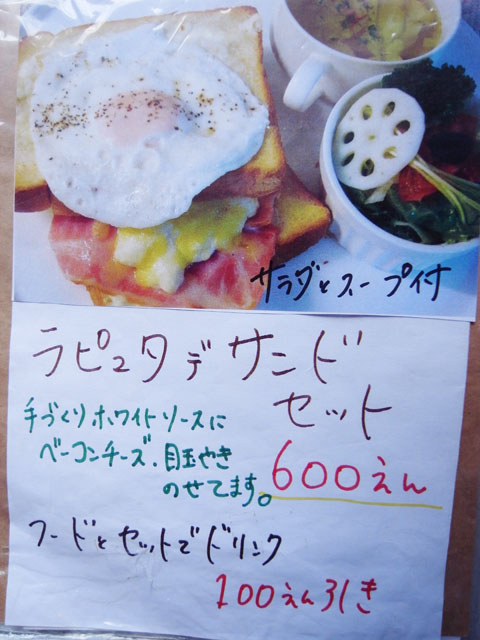 サラダとスープ付
ラピュタデサンド
セット
手づくりホワイトソースに
ベーコンチーズ.目玉やき
のせてます。
600えん
フードとセットでドリンク
100えん引き